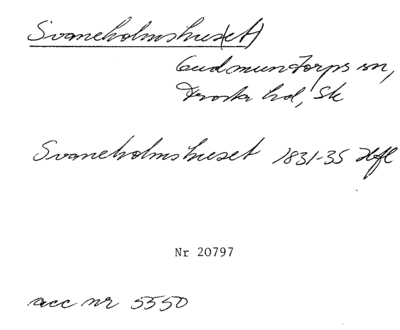 Svaneholmshus(et)
Gudmuntorps sn,
Frosta hd, Sk
Svaneholmshuset 1831-35 Hfl
Nr 20797
acc nr 5550